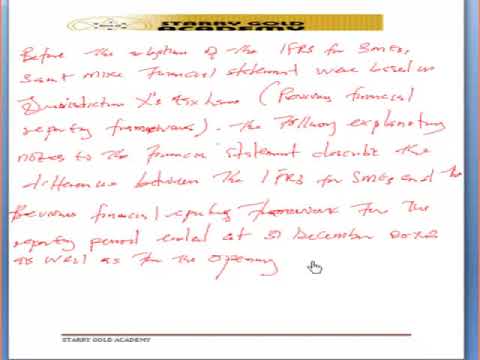 STARRY GOLD
ACADEMY
Before the adoption of the IFRS for SMEs,
financial statement were based on
Jurisdiction X's tax laws (Previous financial
reporting framework). The following explanatory
notes to the financial statement describe the
difference between the IFRS for SMEs and the
Previous financial reporting framework for the
reporting period ended at 31 December
as well as for the opening
STARRY GOLD ACADEMY